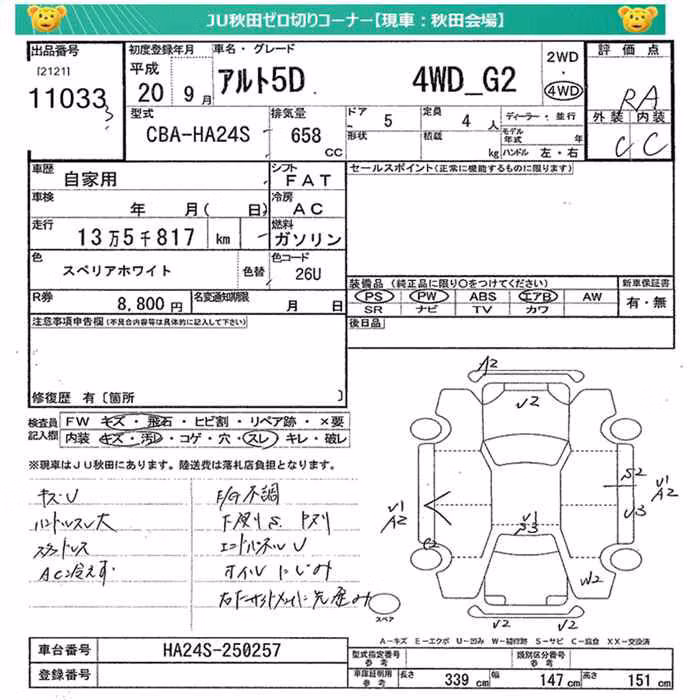 JU秋田ゼロ切りコーナー【現車：秋田会場】
出品番号
[2121]
11033
3
初度登録年月
平成
20 9月
車名・グレード
アルト5D 4WD_G2
2WD
・
4WD
評価点
RA
外装 内装
C C
型式
CBA-HA24S
排気量
658
CC
ドア 5
定員 4 人
形状
積載 kg
ディーラー・並行
モデル年式 年
ハンドル 左・右
車歴
自家用
シフト
FAT
車検
年 月( 日)
冷房
AC
走行
13万5千817 km
燃料
ガソリン
色
スペリアホワイト
色替
色コード
26U
R券
8,800円
名変通知期限
月 日
セールスポイント(正常に機能するものに限ります)
装備品(純正品に限り○をつけてください)
PS PW ABS エアB AW
SR ナビ TV カワ
新車保証書
有・無
注意事項申告欄(不具合内容等は具体的に記入して下さい)
後日品
修復歴 有〔箇所 〕
検査員記入欄
FW キズ・飛石・ヒビ割・リペア跡・×要
内装 キズ・汚レ・コゲ・穴・スレ・キレ・破レ
※現車はJU秋田にあります。陸送費は落札店負担となります。
キズU
ハンドルスレ大
スタッドレス
AC冷えず
E/G不調
下廻りS
エンドパネルU
オイルにじみ
A2
U2
U1
A2
S2
U3
U1
A2
U1
S3
W2
U2 U2
スペア
A−キズ E−エクボ U−凹み W−補修跡 S−サビ C−腐食 XX−交換済
車台番号
HA24S-250257
登録番号
型式指定番号
参考
類別区分番号
参考
車庫証明用
参考
長さ 339 cm
幅 147 cm
高さ 151 cm